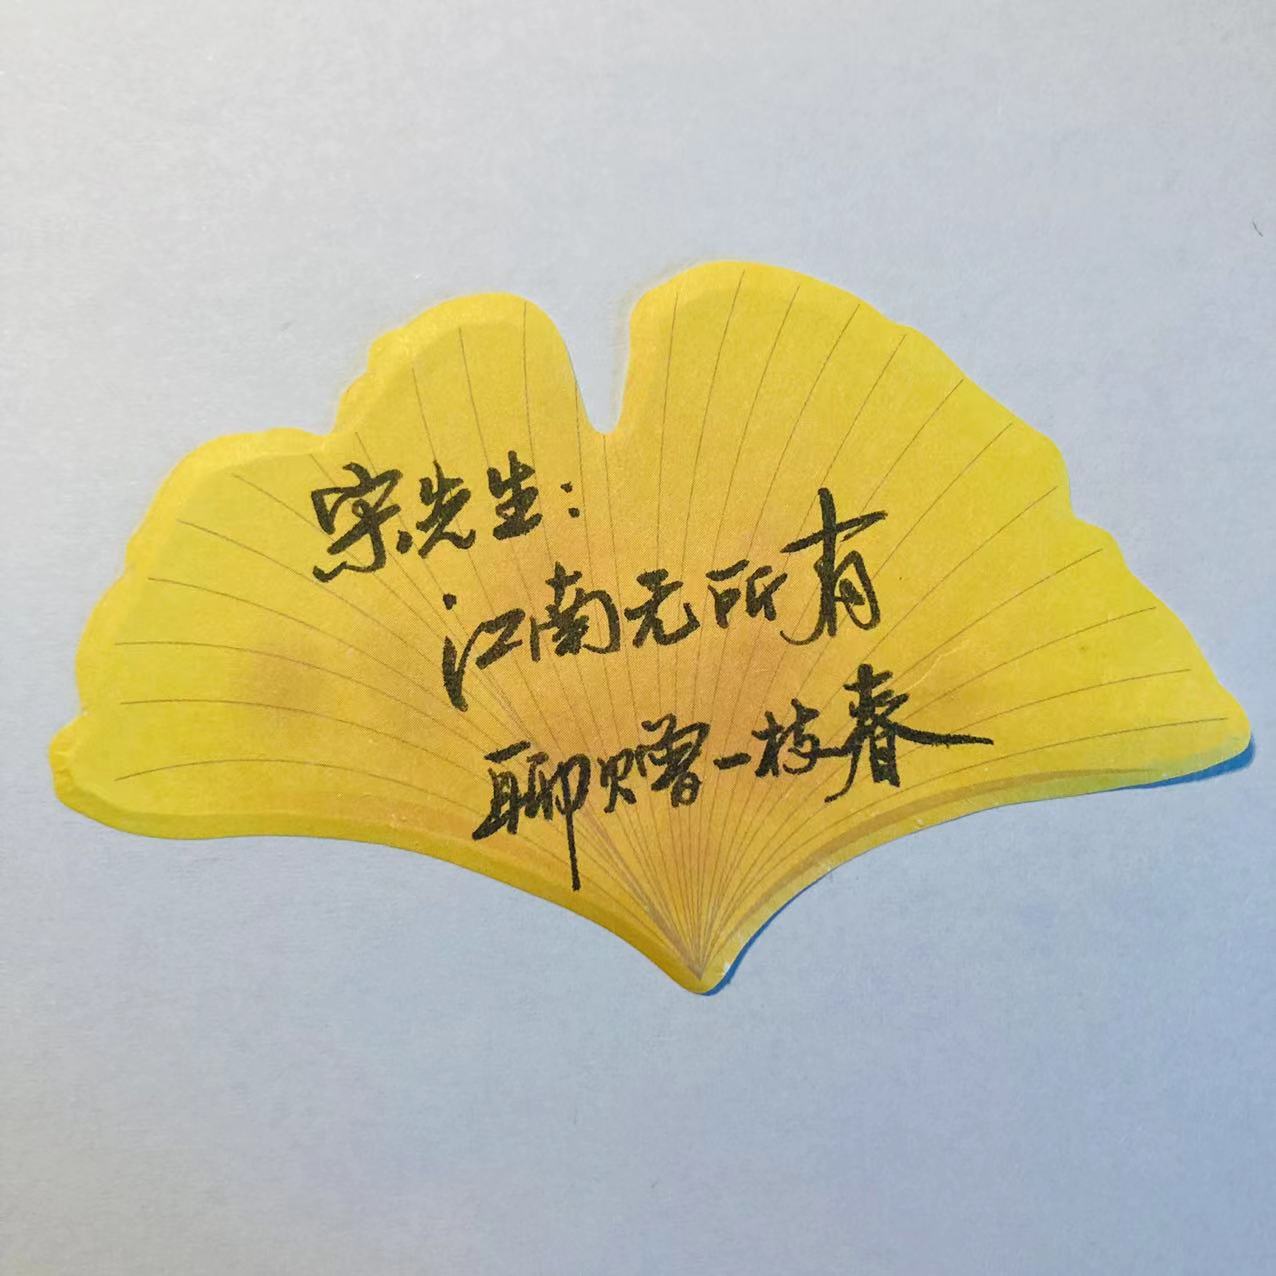 宋先生：
江南无所有
聊赠一枝春